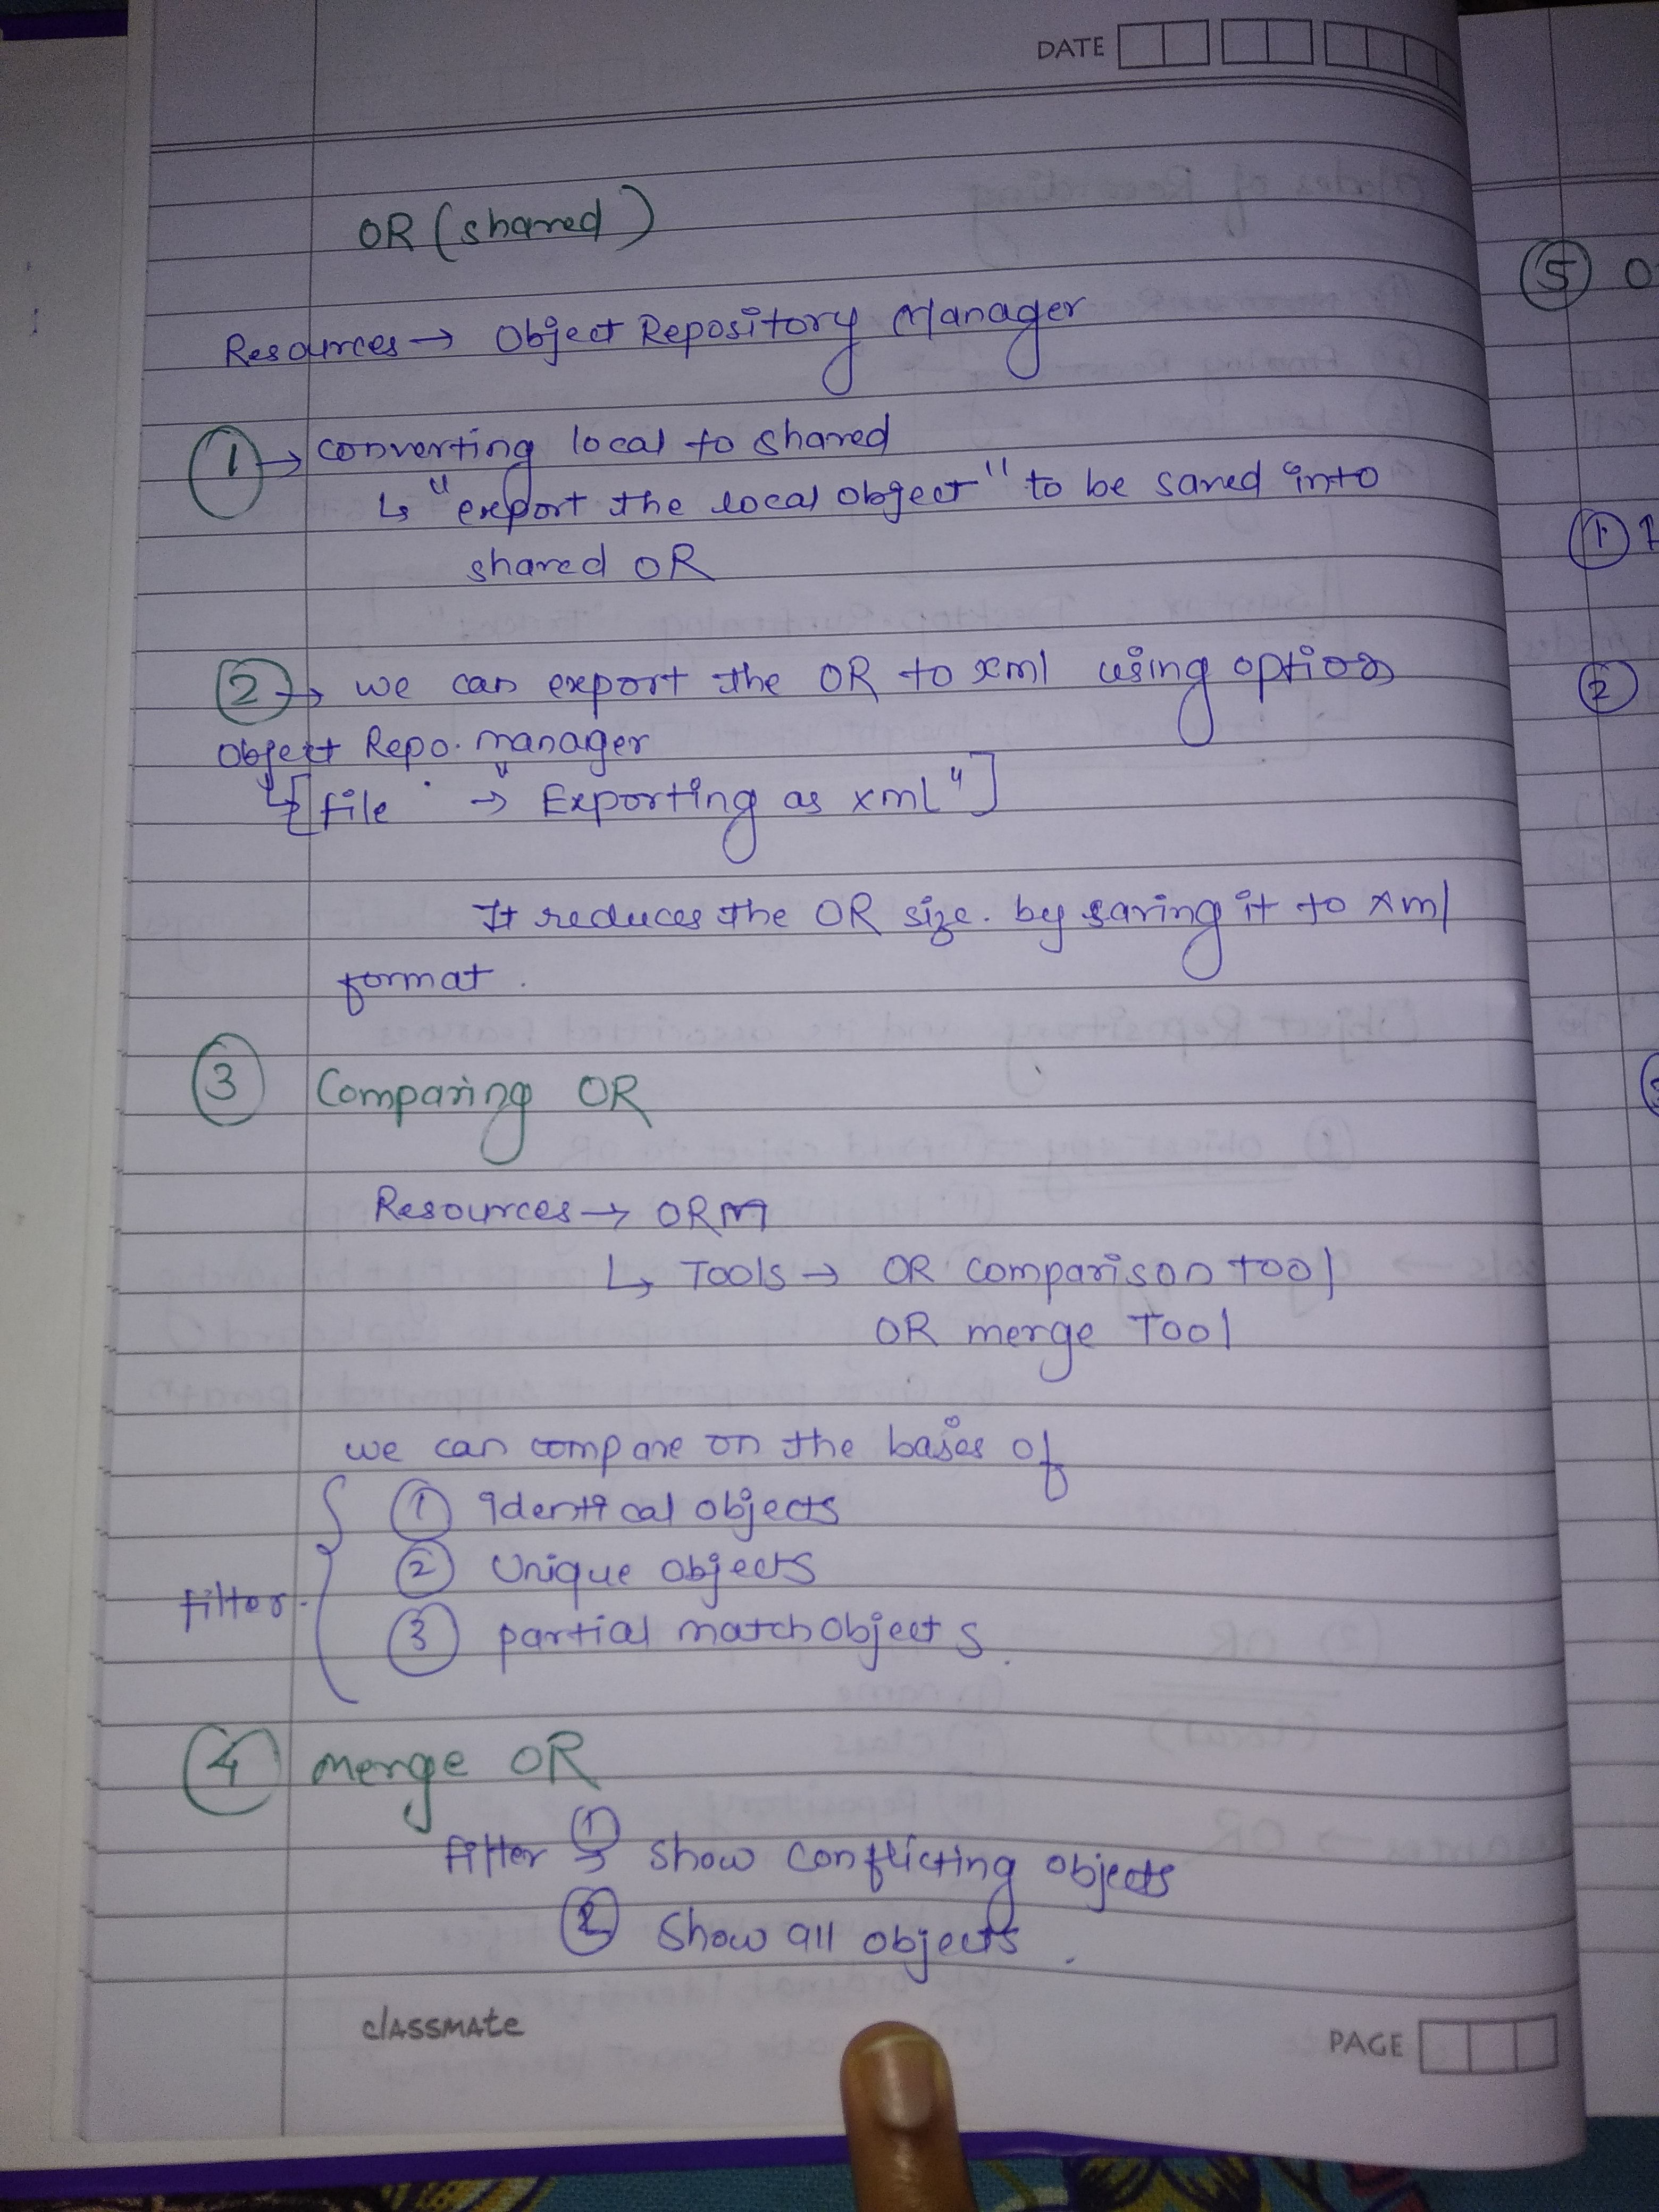 DATE
OR (shared)
Resources → Object Repository Manager
① → converting local to shared
↳ "export the local object" to be saved into
shared OR
② → we can export the OR to xml using option
Object Repo. manager
↳ [file → "Exporting as xml"]
It reduces the OR size. by saving it to xml
format.
③ Comparing OR
Resources → ORM
↳ Tools → OR comparison tool
OR merge Tool
we can compare on the bases of
① identical objects
② Unique objects
filter
③ partial match objects.
④ merge OR
filter → ① show conflicting objects
② Show all objects.
classmate
PAGE
⑤
①
②